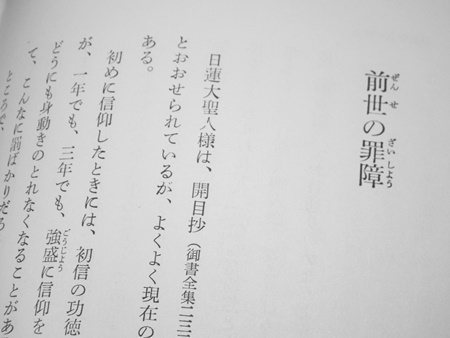 前世の罪障
ぜんせ ざいしよう
日蓮大聖人様は、開目抄(御書全集二三
とおおせられているが、よくよく現在の
ある。
初めに信仰したときには、初信の功徳
が、一年でも、三年でも、強盛に信仰を
ごうじよう
どうにも身動きのとれなくなることがあ
て、こんなに罰ばかりだろ
ところで、